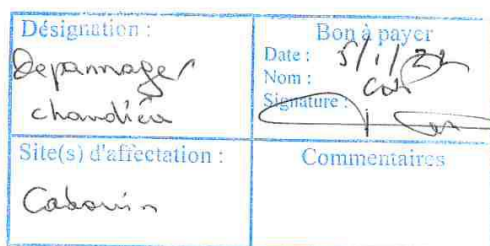 Désignation :
Depannage
chaudière
Bon à payer
Date : 5/1/22
Nom :
Signature :
Site(s) d'affectation :
Commentaires